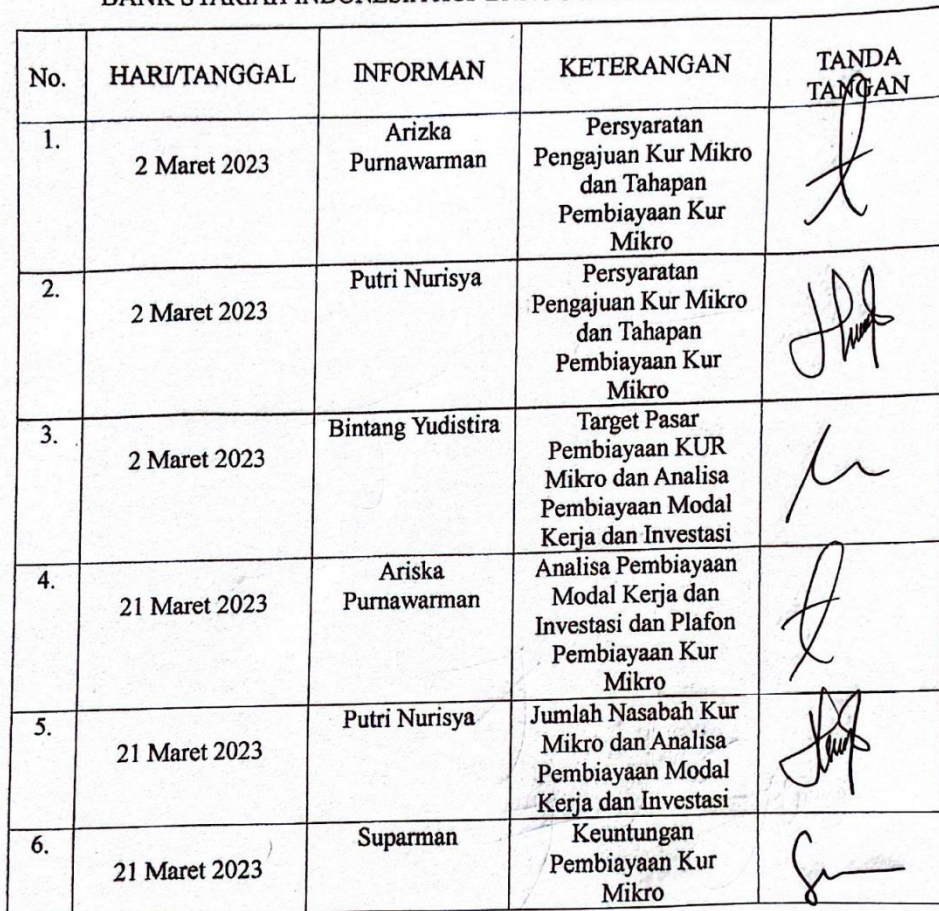 BANK SYARIAH INDONESIA
No.
HARI/TANGGAL
INFORMAN
KETERANGAN
TANDA
TANGAN
1.
2 Maret 2023
Arizka
Purnawarman
Persyaratan
Pengajuan Kur Mikro
dan Tahapan
Pembiayaan Kur
Mikro
2.
2 Maret 2023
Putri Nurisya
Persyaratan
Pengajuan Kur Mikro
dan Tahapan
Pembiayaan Kur
Mikro
3.
2 Maret 2023
Bintang Yudistira
Target Pasar
Pembiayaan KUR
Mikro dan Analisa
Pembiayaan Modal
Kerja dan Investasi
4.
21 Maret 2023
Ariska
Purnawarman
Analisa Pembiayaan
Modal Kerja dan
Investasi dan Plafon
Pembiayaan Kur
Mikro
5.
21 Maret 2023
Putri Nurisya
Jumlah Nasabah Kur
Mikro dan Analisa
Pembiayaan Modal
Kerja dan Investasi
6.
21 Maret 2023
Suparman
Keuntungan
Pembiayaan Kur
Mikro